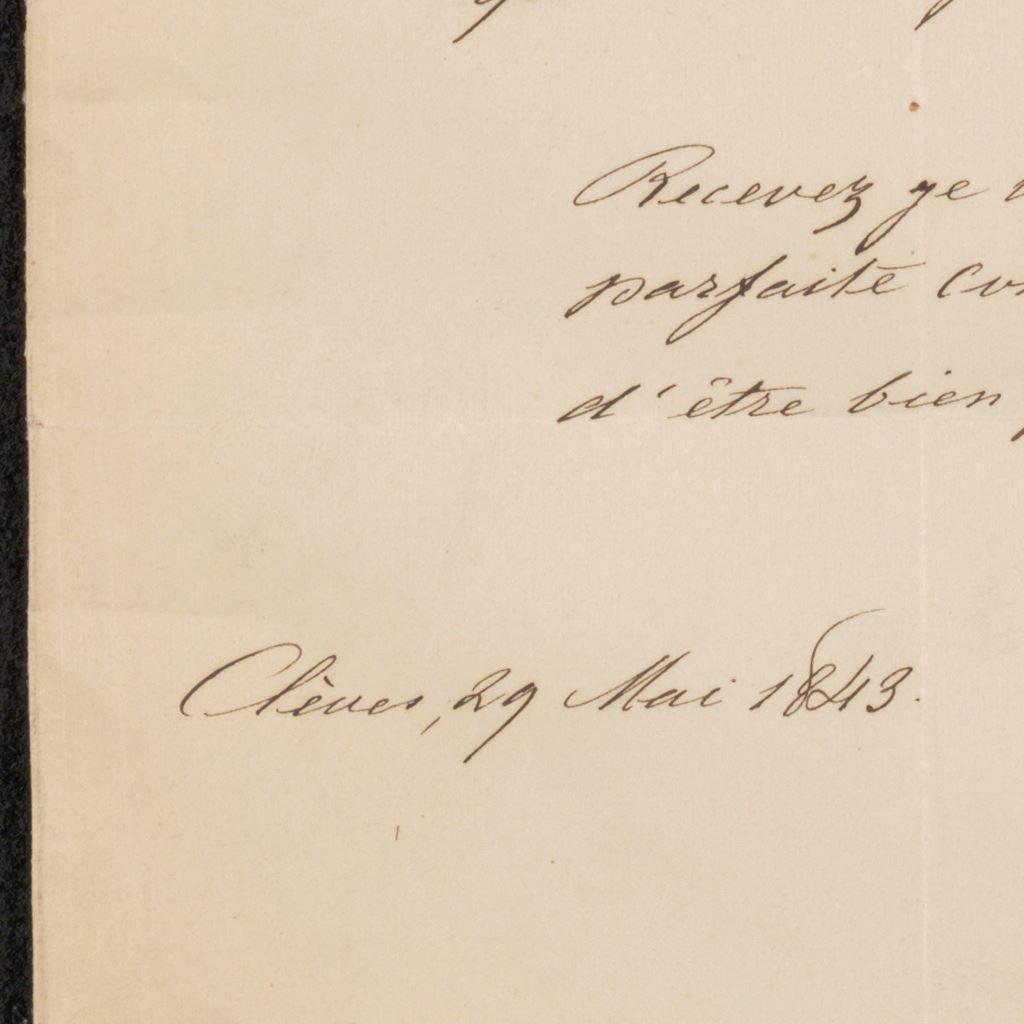 Recevez je
parfaite
d'être bien
Clèves, 29 Mai 1843.